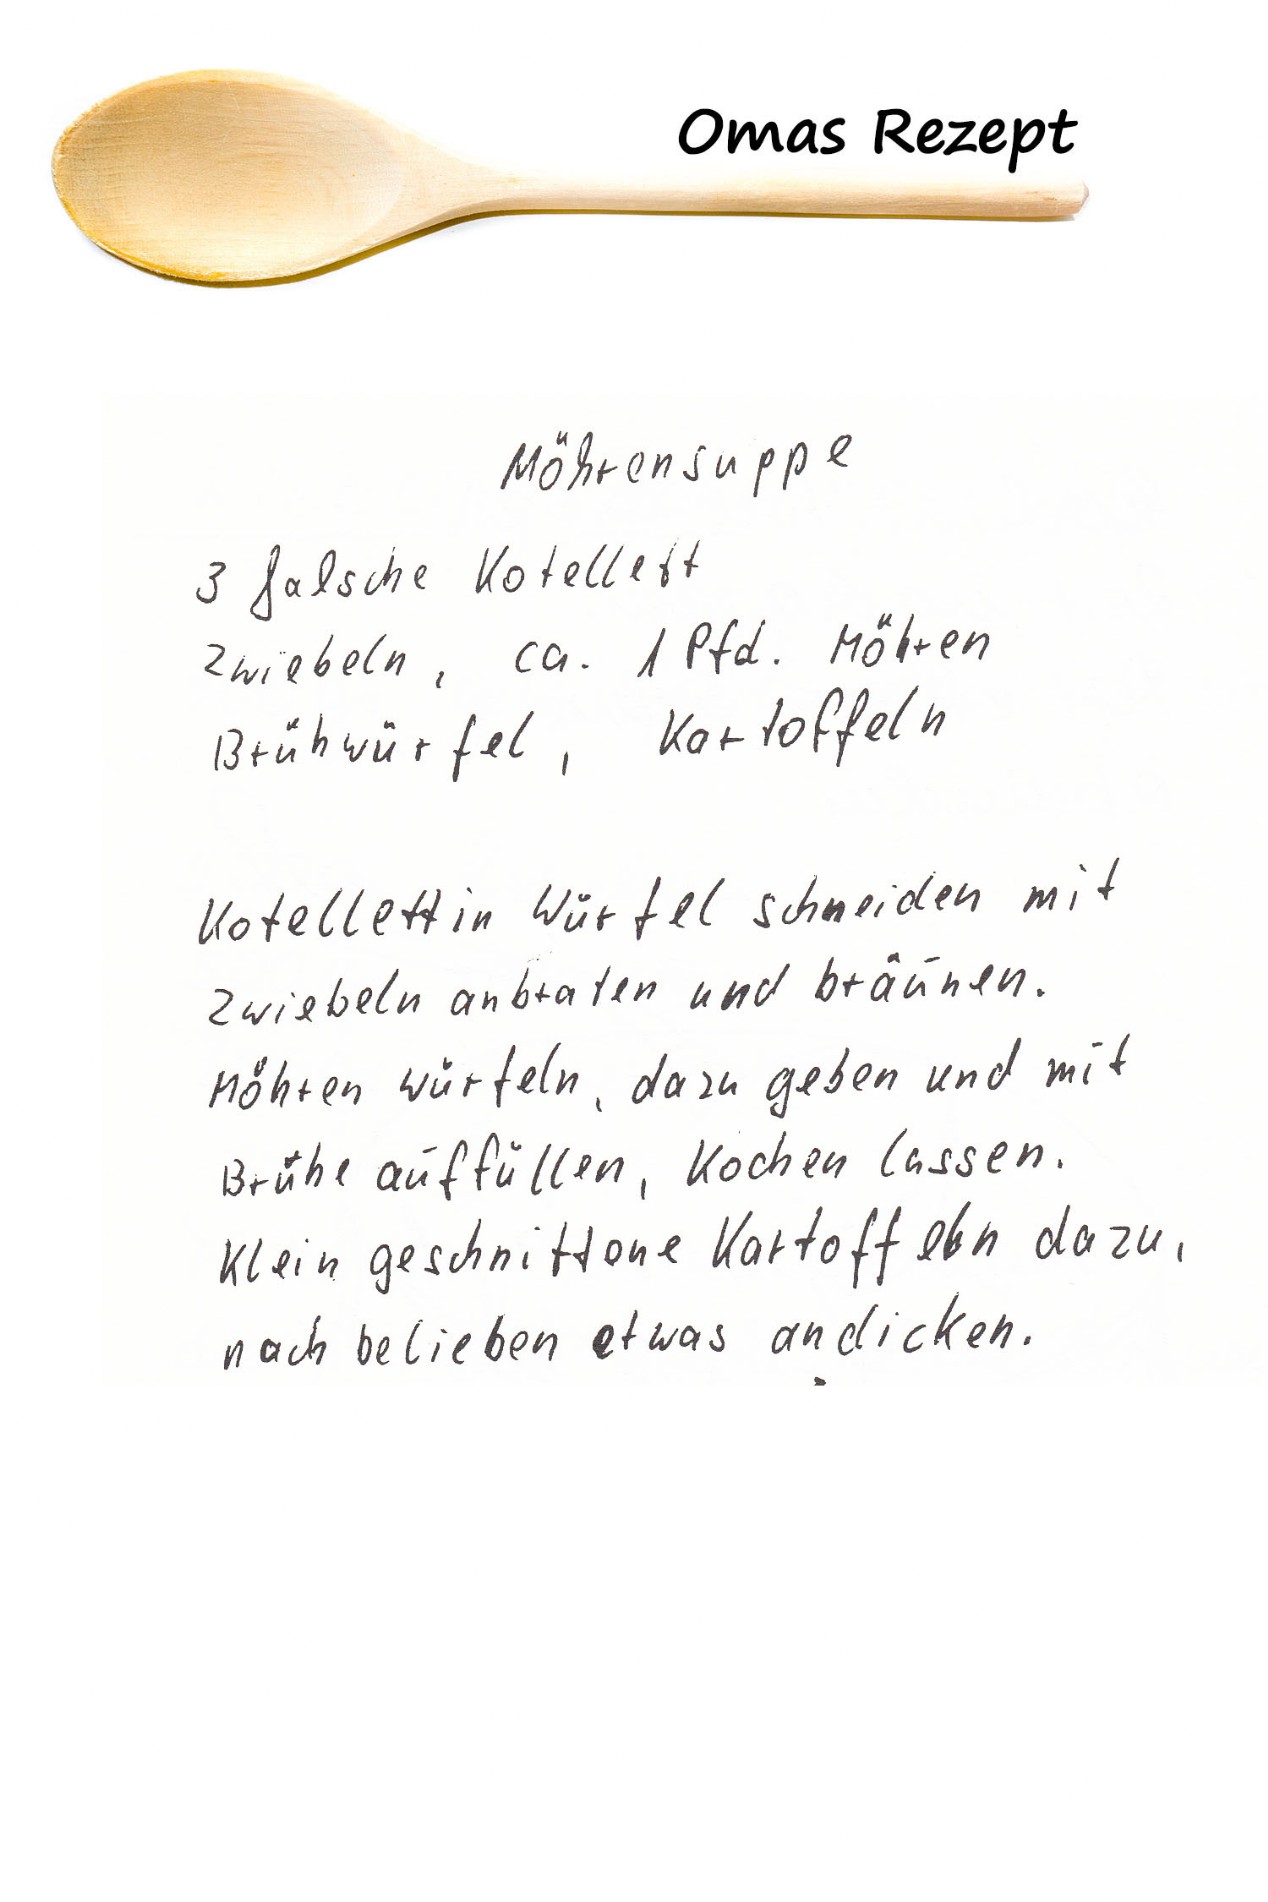 Omas Rezept
Möhrensuppe
3 falsche Kotellett
Zwiebeln, ca. 1 Pfd. Möhren
Brühwürfel, Kartoffeln
Kotellett in Würfel schneiden mit
Zwiebeln anbraten und bräunen.
Möhren würfeln, dazu geben und mit
Brühe auffüllen, Kochen lassen.
Klein geschnittene Kartoffeln dazu,
nach belieben etwas andicken.